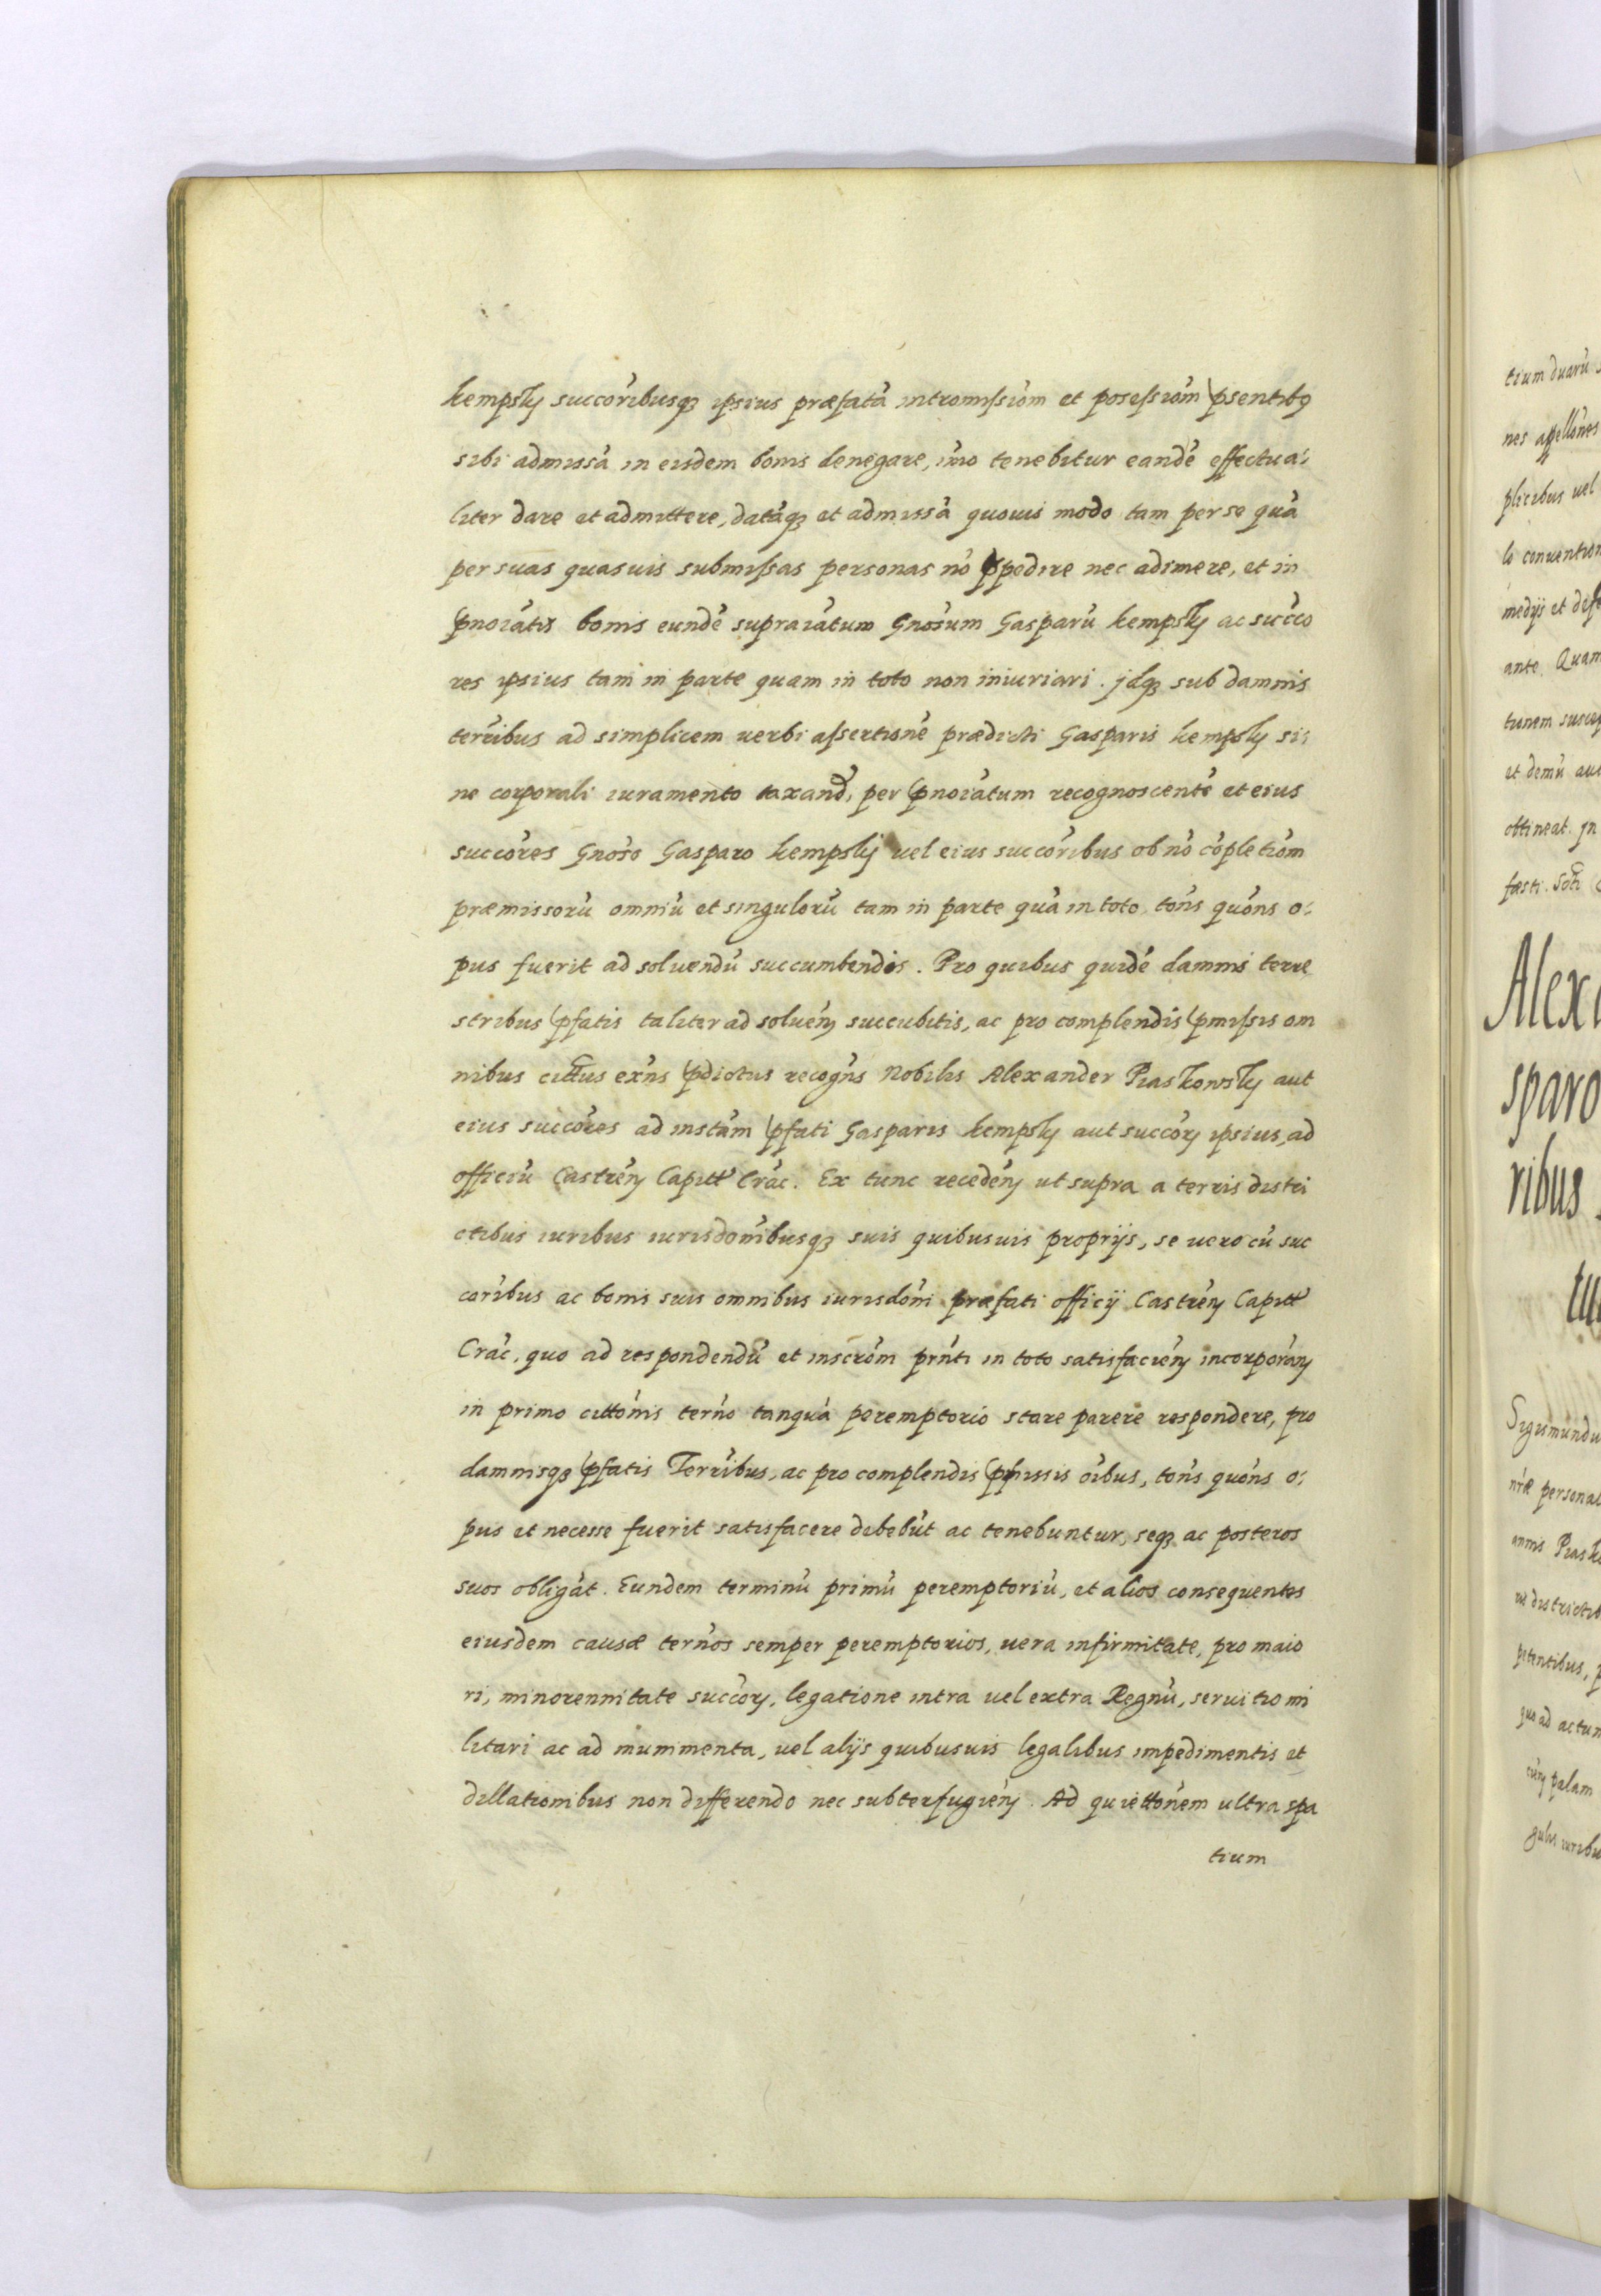 kempsky succoribusq̃ ipsius præfatã intromissiom et posessiom psentibq
sibi admissã in eisdem bonis denegare, imo tenebitur eandẽ effectua:
liter dare et admittere, datãq̃ et admissã quouis modo tam per se quã
per suas quasuis submissas personas nõ ppedire nec adimere, et in
pnoiatis bonis eundẽ supraiatum Gnosum Gasparũ kempsky ac succo
res ipsius tam in parte quam in toto non iniuriari. jdq̃ sub damnis
terribus ad simplicem verbi assertionẽ prædicti Gasparis kempsky si:
ne corporali iuramento taxand, per pnoiatum recognoscentẽ et eius
succores Gnoso Gasparo kempskÿ vel eius succoribus ob nõ cõpletiom
præmissorũ omniũ et singulorũ tam in parte quã in toto, tons quons o:
pus fuerit ad soluendũ succumbendis. Pro quibus quidẽ damnis terre
stribus pfatis taliter ad soluen succubitis, ac pro complendis pmissis om
nibus citus exns pdictus recogns Nobilis Alexander Piaskowsky aut
eius succores ad instam pfati Gasparis kempsky aut succorꝝ ipsius, ad
officiũ Castren Capitt Crac. Ex tunc receden ut supra a terris distri
ctibus iuribus iurisdonibusq̃ suis quibusuis proprijs, se vero cũ suc
coribus ac bonis suis omnibus iurisdoni præfati officij Castren Capitt
Crac, quo ad respondendũ et inscrom prnti in toto satisfacien incorporan
in primo cittonis terno tanquã peremptorio stare parere respondere, pro
damnisq̃ pfatis Terribus, ac pro complendis pmissis oibus, tons quons o:
pus et necesse fuerit satisfacere debebũt ac tenebuntur, seq̃ ac posteros
suos obligãt. Eundem terminũ primũ peremptoriũ, et alios consequentes
eiusdem causæ ternos semper peremptorios, vera infirmitate, pro maio
ri, minorennitate succorꝝ, legatione intra vel extra Regnũ, seruitio mi
litari ac ad munimenta, vel alijs quibusuis legalibus impedimentis et
dillationibus non differendo nec subterfugien. Ad quiettonem ultra spa
tium
tium duarũ
nes appellones
plicibus vel
lo conuention
medijs et defe
ante. Quam
tionem suscep
et demũ aut
obtineat. jn
festi. Scti
Alexa
sparo
ribus
tu
Sigismundu
nræ personal
annis Piask
districtib
petentibus, p
quo ad actum
cien palam
gulis iuribu